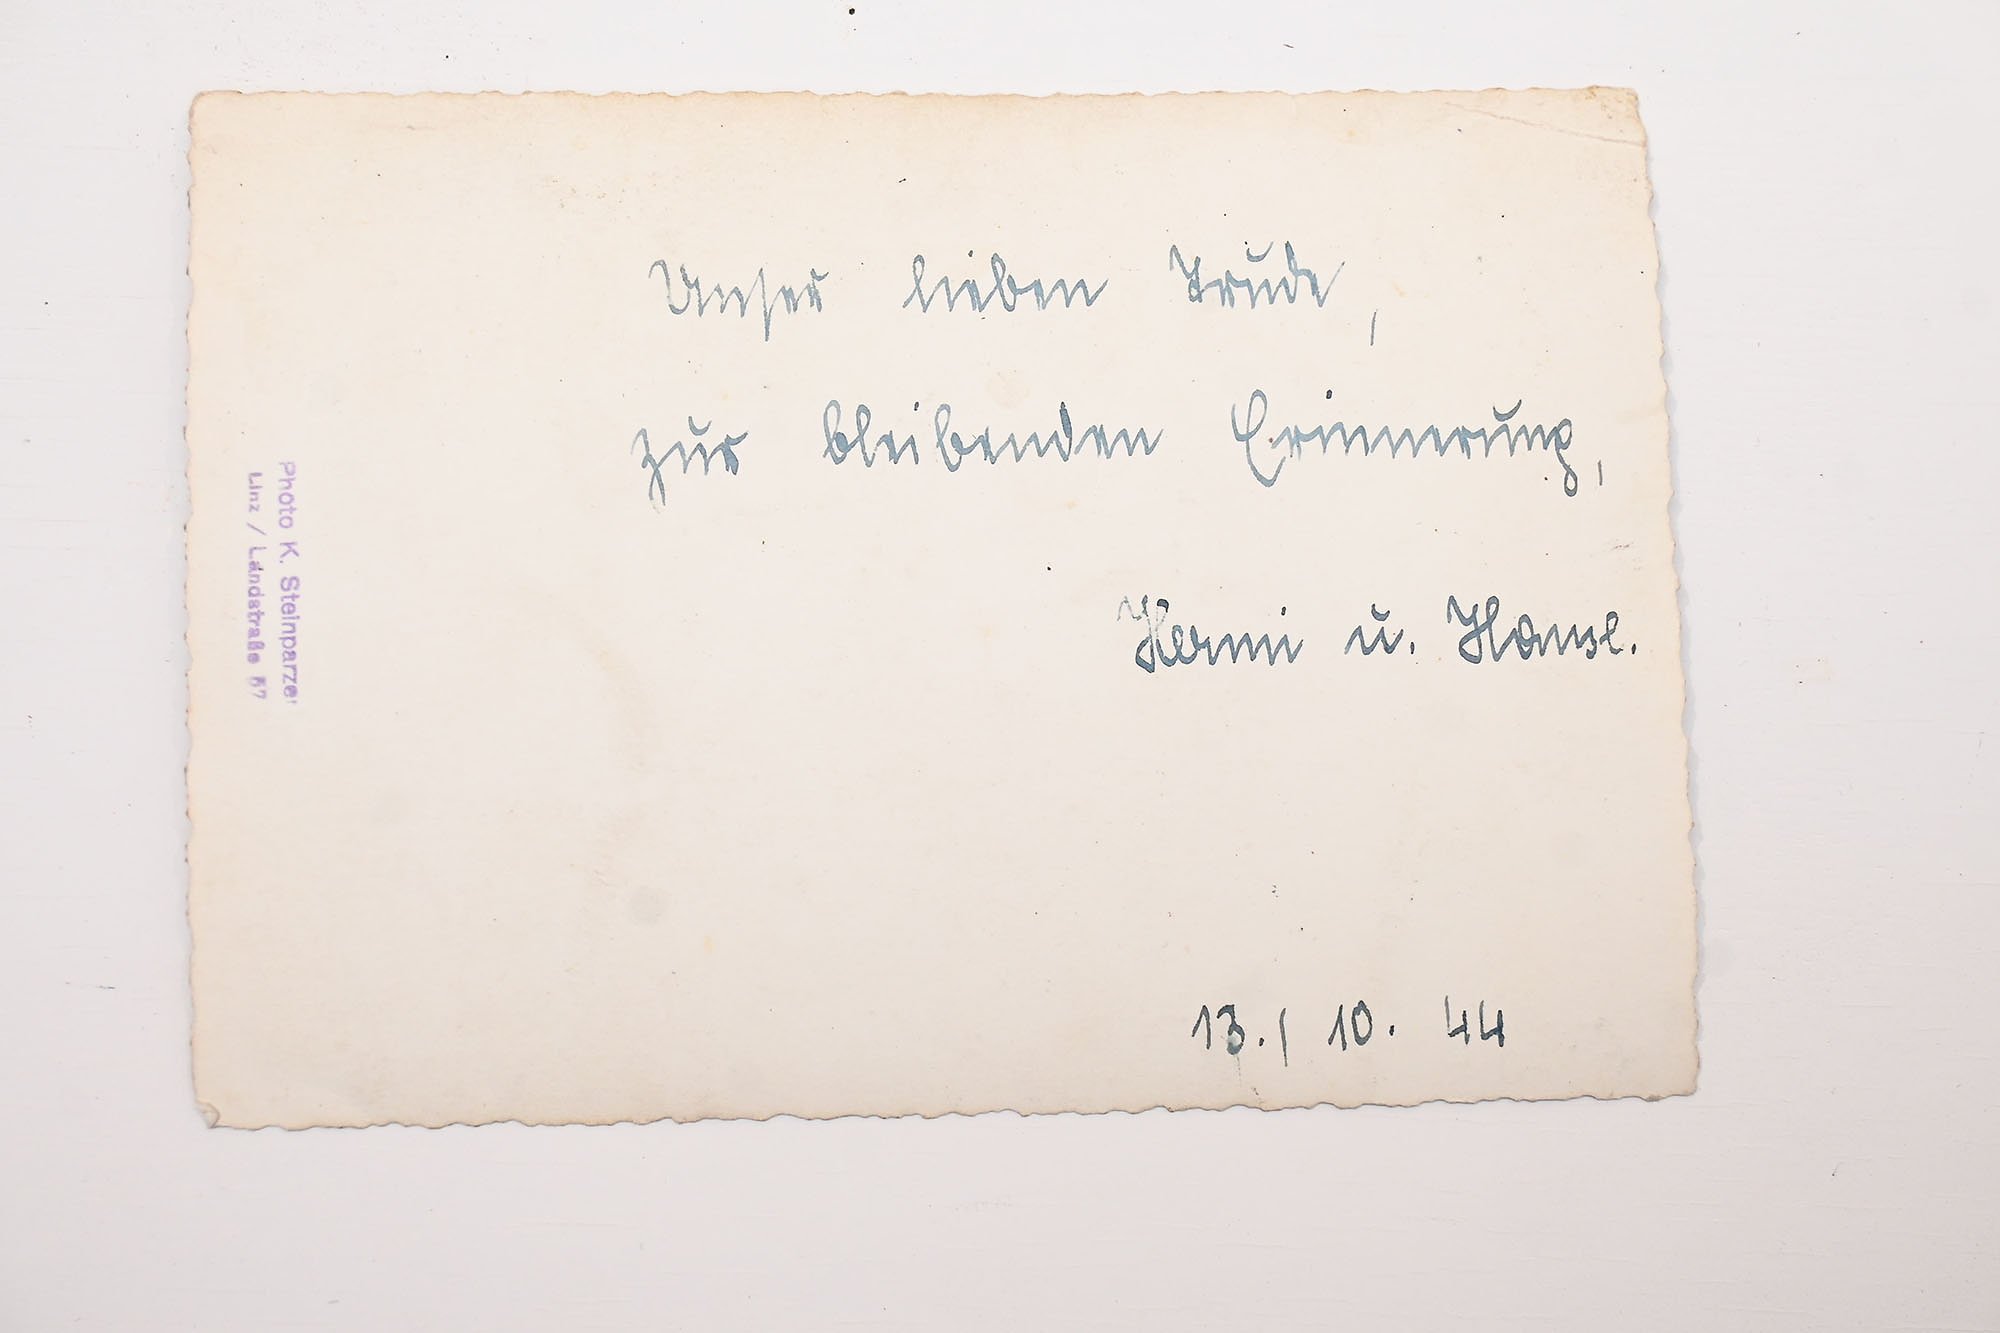 Unser lieben Trude,
zur bleibenden Erinnerung,
Hermi u. Hansl.
13./10. 44
Photo K. Steinparzer
Linz / Landstraße 57